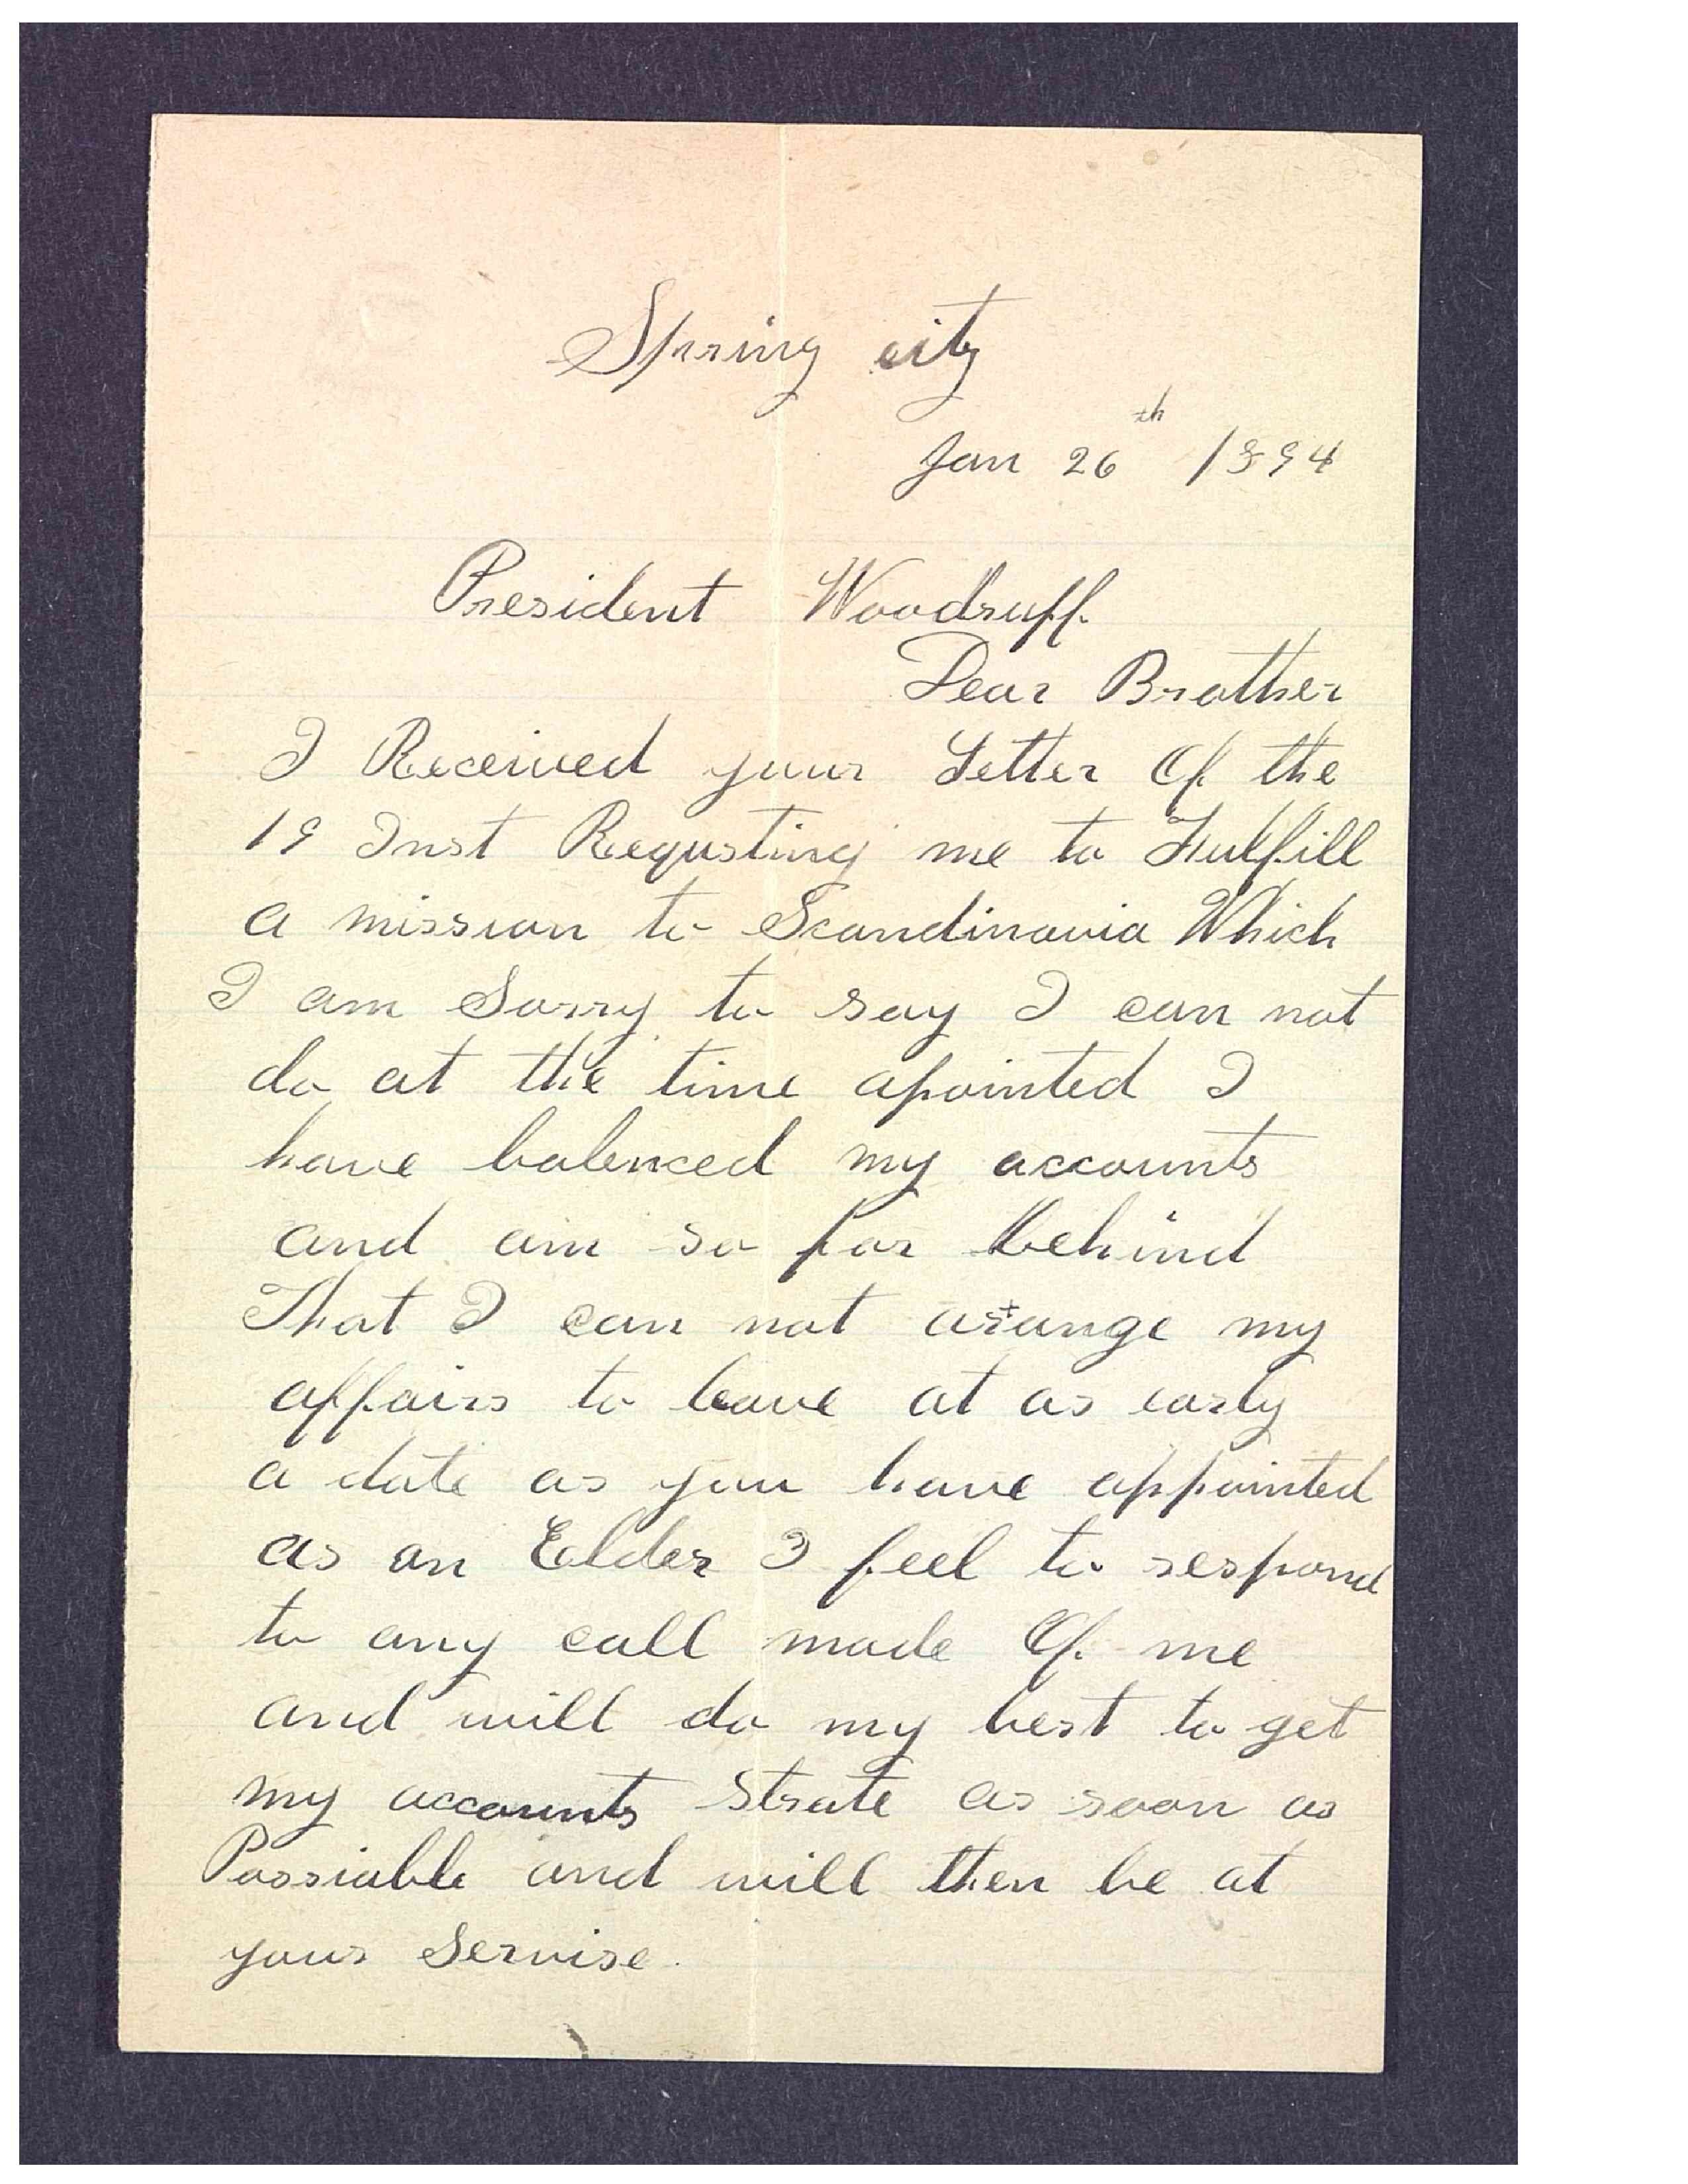 Spring city
Jan 26th 1894
President Woodruff.
Dear Brother
I Received your Letter Of the
19 Inst Requsting me to Fulfill
a mission to Scandinavia Which
I am Sorry to say I can not
do at the time apointed I
have balenced my accounts
and am so far behind
That I can not arange my
affairs to leave at as early
a date as you have appointed
as an Elder I feel to respond
to any call made Of me
and will do my best to get
my accounts strate as soon as
Possiable and will then be at
your Servise.